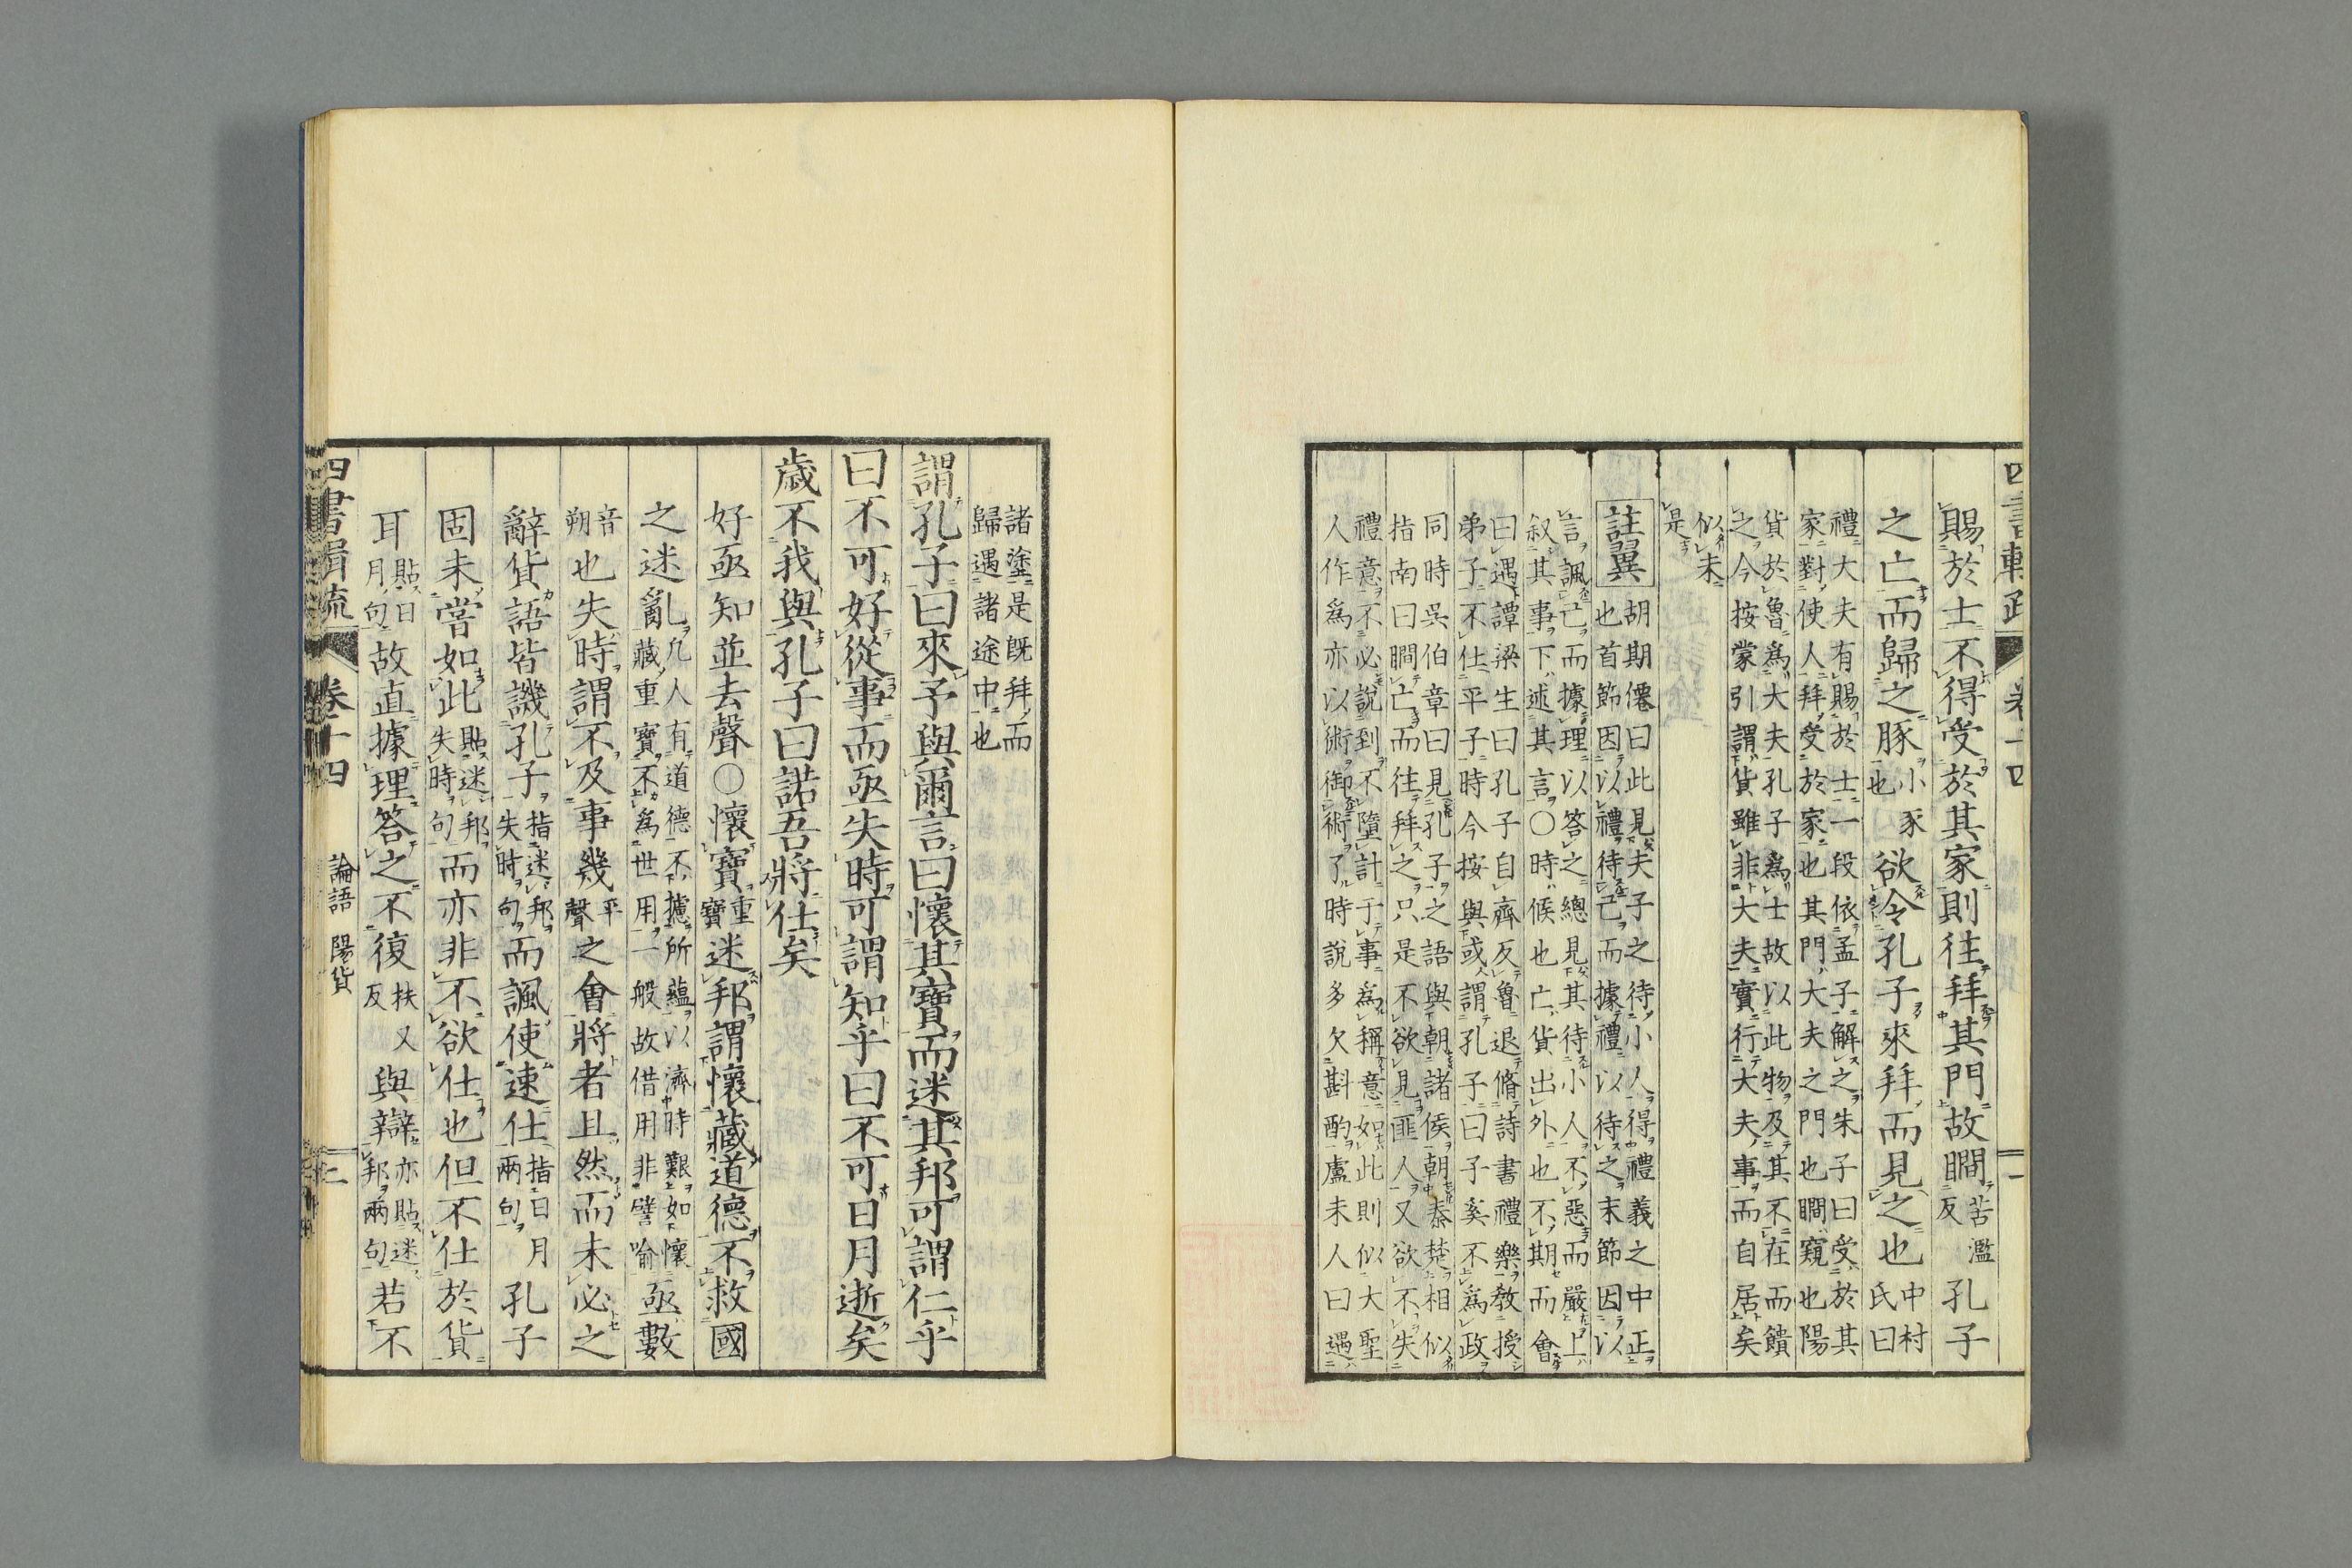 四書輯疏 卷十四 一
賜於士不得受於其家則往拜其門故瞷苦濫反孔子
之亡而歸之豚小豕也欲令孔子來拜而見之也中村氏曰
禮大夫有賜於士一段依孟子解之朱子曰受於其
家對使人拜受於家也其門大夫之門也瞷窺也陽
貨於魯為大夫孔子為士故以此物及其不在而饋
之今按蒙引謂貨雖非大夫實行大夫事而自居矣
似未
是
註翼胡期僊曰此見夫子之待小人得禮義之中正
也首節因以禮待己而據禮以待之末節因以
言諷亡而據理以答之總見其待小人不惡而嚴上
叙其事下述其言○時候也亡貨出外也不期而會
曰遇譚梁生曰孔子自齊反魯退脩詩書禮樂教授
弟子不仕平子時今按與或謂孔子曰子奚不為政
同時吳伯章曰見孔子之語與朝諸侯朝秦楚相似
指南曰瞷亡而往拜之只是不欲見匪人又欲不失
禮意不必說到不墮計于事為稱意如此則似大聖
人作為亦以術御術了時說多欠斟酌盧未人曰遇
諸塗是既拜而
歸遇諸途中也
謂孔子曰來予與爾言曰懷其寶而迷其邦可謂仁乎
曰不可好從事而亟失時可謂知乎曰不可日月逝矣
歲不我與孔子曰諾吾將仕矣
好亟知並去聲○懷寶重寶迷邦謂懷藏道德不救國
之迷亂凡人有道德不攄所蘊以濟時艱如懷藏重寶不為世用一般故借用非譬喻亟數
音朔也失時謂不及事幾平聲之會將者且然而未必之
辭貨語皆譏孔子指迷邦失時句而諷使速仕指日月兩句孔子
固未嘗如此貼迷邦失時句而亦非不欲仕也但不仕於貨
耳貼日月句故直據理答之不復扶又反與辯亦貼迷邦兩句若不
四書輯疏 卷十四 論語 陽貨 二